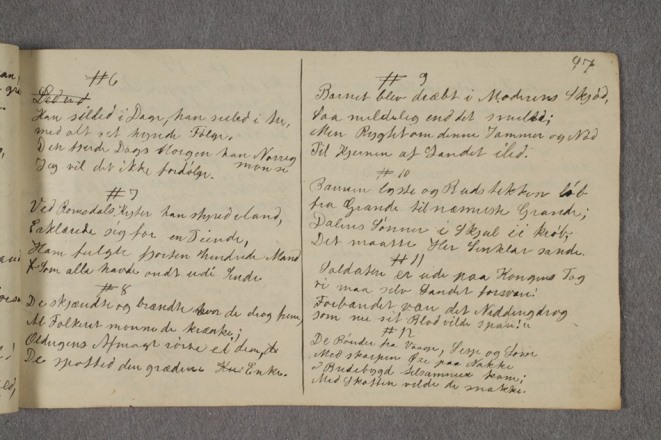 97
#6
Han seiled i Dage, han seiled i tre,
med alt sit hyrede Følge.
Den tredie Dags Morgen han Norreg
monne se
Jeg vil det ikke fordølge.
#7
Ved Romsdals Kyster han styred iland,
Erklærede sig for en Fiende,
Ham fulgte fjorten Hundrede Mand
Som alle havde ondt udi Sinde.
#8
De skjændte og brændte hvor de drog frem,
Al Folket monne de krænke;
Oldingens Afmagt rørte ei dem,
De spotted den grædende Enke.
#9
Barnet blev dræbt i Moderens Skjød,
Saa mildelig end det smiled;
Men Rygtet om denne Jammer og Nød
Til Kjernen af Landet iled.
#10
Baunen lyste og Budstikken løb
fra Grande til næmeste Grande;
Dalens Sønner i Skjul ei krøb;
Det maatte Her Sinklar sande.
#11
Soldaten er ude paa Kongens Tog
vi maa selv Landet forsvare;
Forbandet være det Niddingdrog
som nu sit Blod vilde spare;
#12
De Bønder fra Vaage, Lesje og Lom
Med skarpen Øxe paa Nakke
I Bredebygd tilsammen kom;
Med Skotten vilde de snakke.